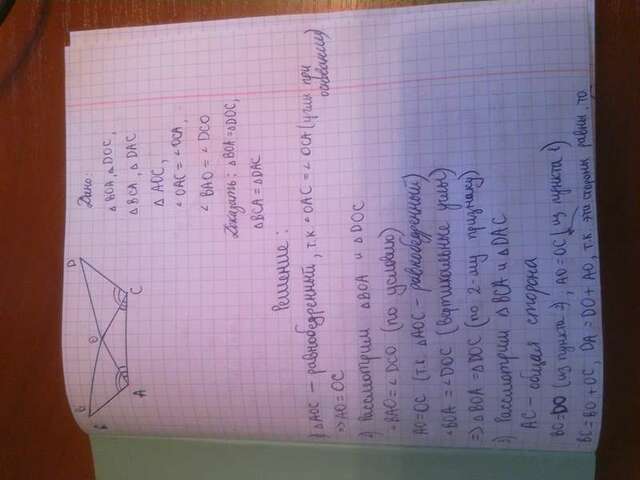 B
D
O
A
C
Дано:
△ BOA, △ DOC,
△ BCA, △ DAC
△ AOC,
∠ OAC = ∠ OCA,
∠ BAO = ∠ DCO
Доказать: △ BOA = △DOC,
△ BCA = △DAC
Решение:
1) △AOC – равнобедренный, т.к. ∠OAC = ∠ OCA (углы при
основании)
=> AO = OC
2) Рассмотрим △BOA и △DOC
∠BAO = ∠ DCO (по условию)
AO=OC (т.к. △AOC – равнобедренный)
∠BOA = ∠DOC (вертикальные углы)
=> △BOA = △DOC (по 2-му признаку)
3) Рассмотрим △BCA и △DAC
AC – общая сторона
BO=DO (из пункта 2), AO=OC (из пункта 1)
BC = BO + OC, DA = DO + AO, т.к. эти стороны равны, то